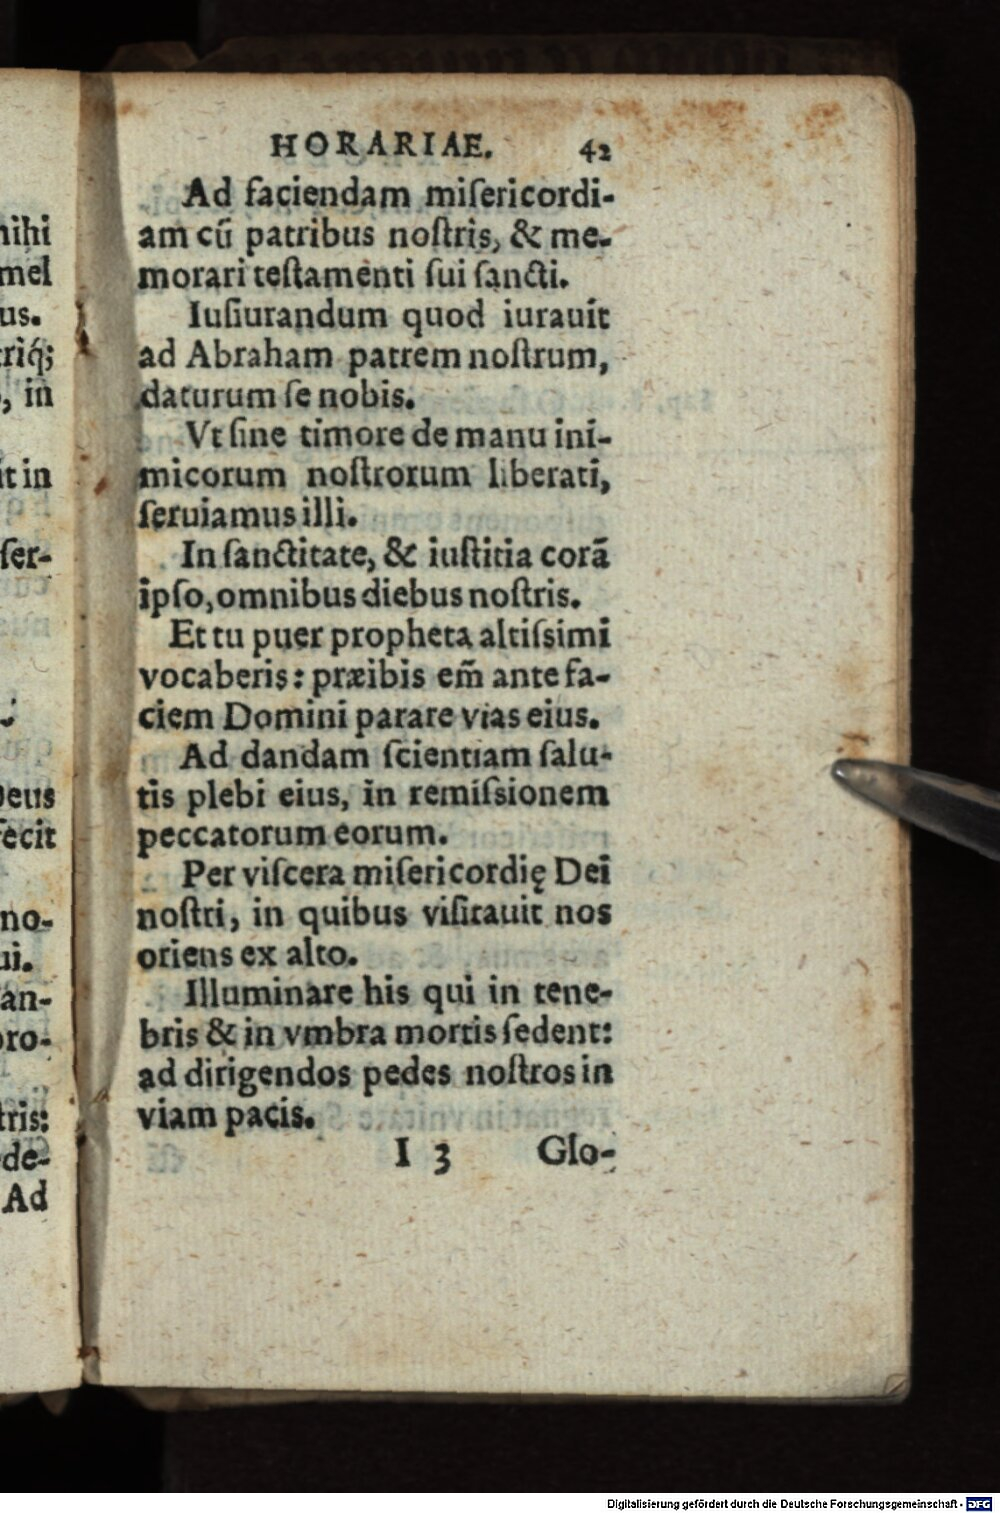 HORARIAE. 42
Ad faciendam miſericordi-
am cū patribus noſtris, & me-
morari teſtamenti ſui ſancti.
Iuſiurandum quod iurauit
ad Abraham patrem noſtrum,
daturum ſe nobis.
Vt ſine timore de manu ini-
micorum noſtrorum liberati,
ſeruiamus illi.
In ſanctitate, & iuſtitia corā
ipſo, omnibus diebus noſtris.
Et tu puer propheta altiſsimi
vocaberis: præibis em̃ ante fa-
ciem Domini parare vias eius.
Ad dandam ſcientiam ſalu-
tis plebi eius, in remiſsionem
peccatorum eorum.
Per viſcera miſericordię Dei
noſtri, in quibus viſitauit nos
oriens ex alto.
Illuminare his qui in tene-
bris & in vmbra mortis ſedent:
ad dirigendos pedes noſtros in
viam pacis.
I 3 Glo-
nihi
mel
us.
triq́;
, in
it in
ſer-
Deus
fecit
no-
ui.
an-
pro-
tris:
de-
Ad
Digitalisierung gefördert durch die Deutsche Forschungsgemeinschaft - DFG